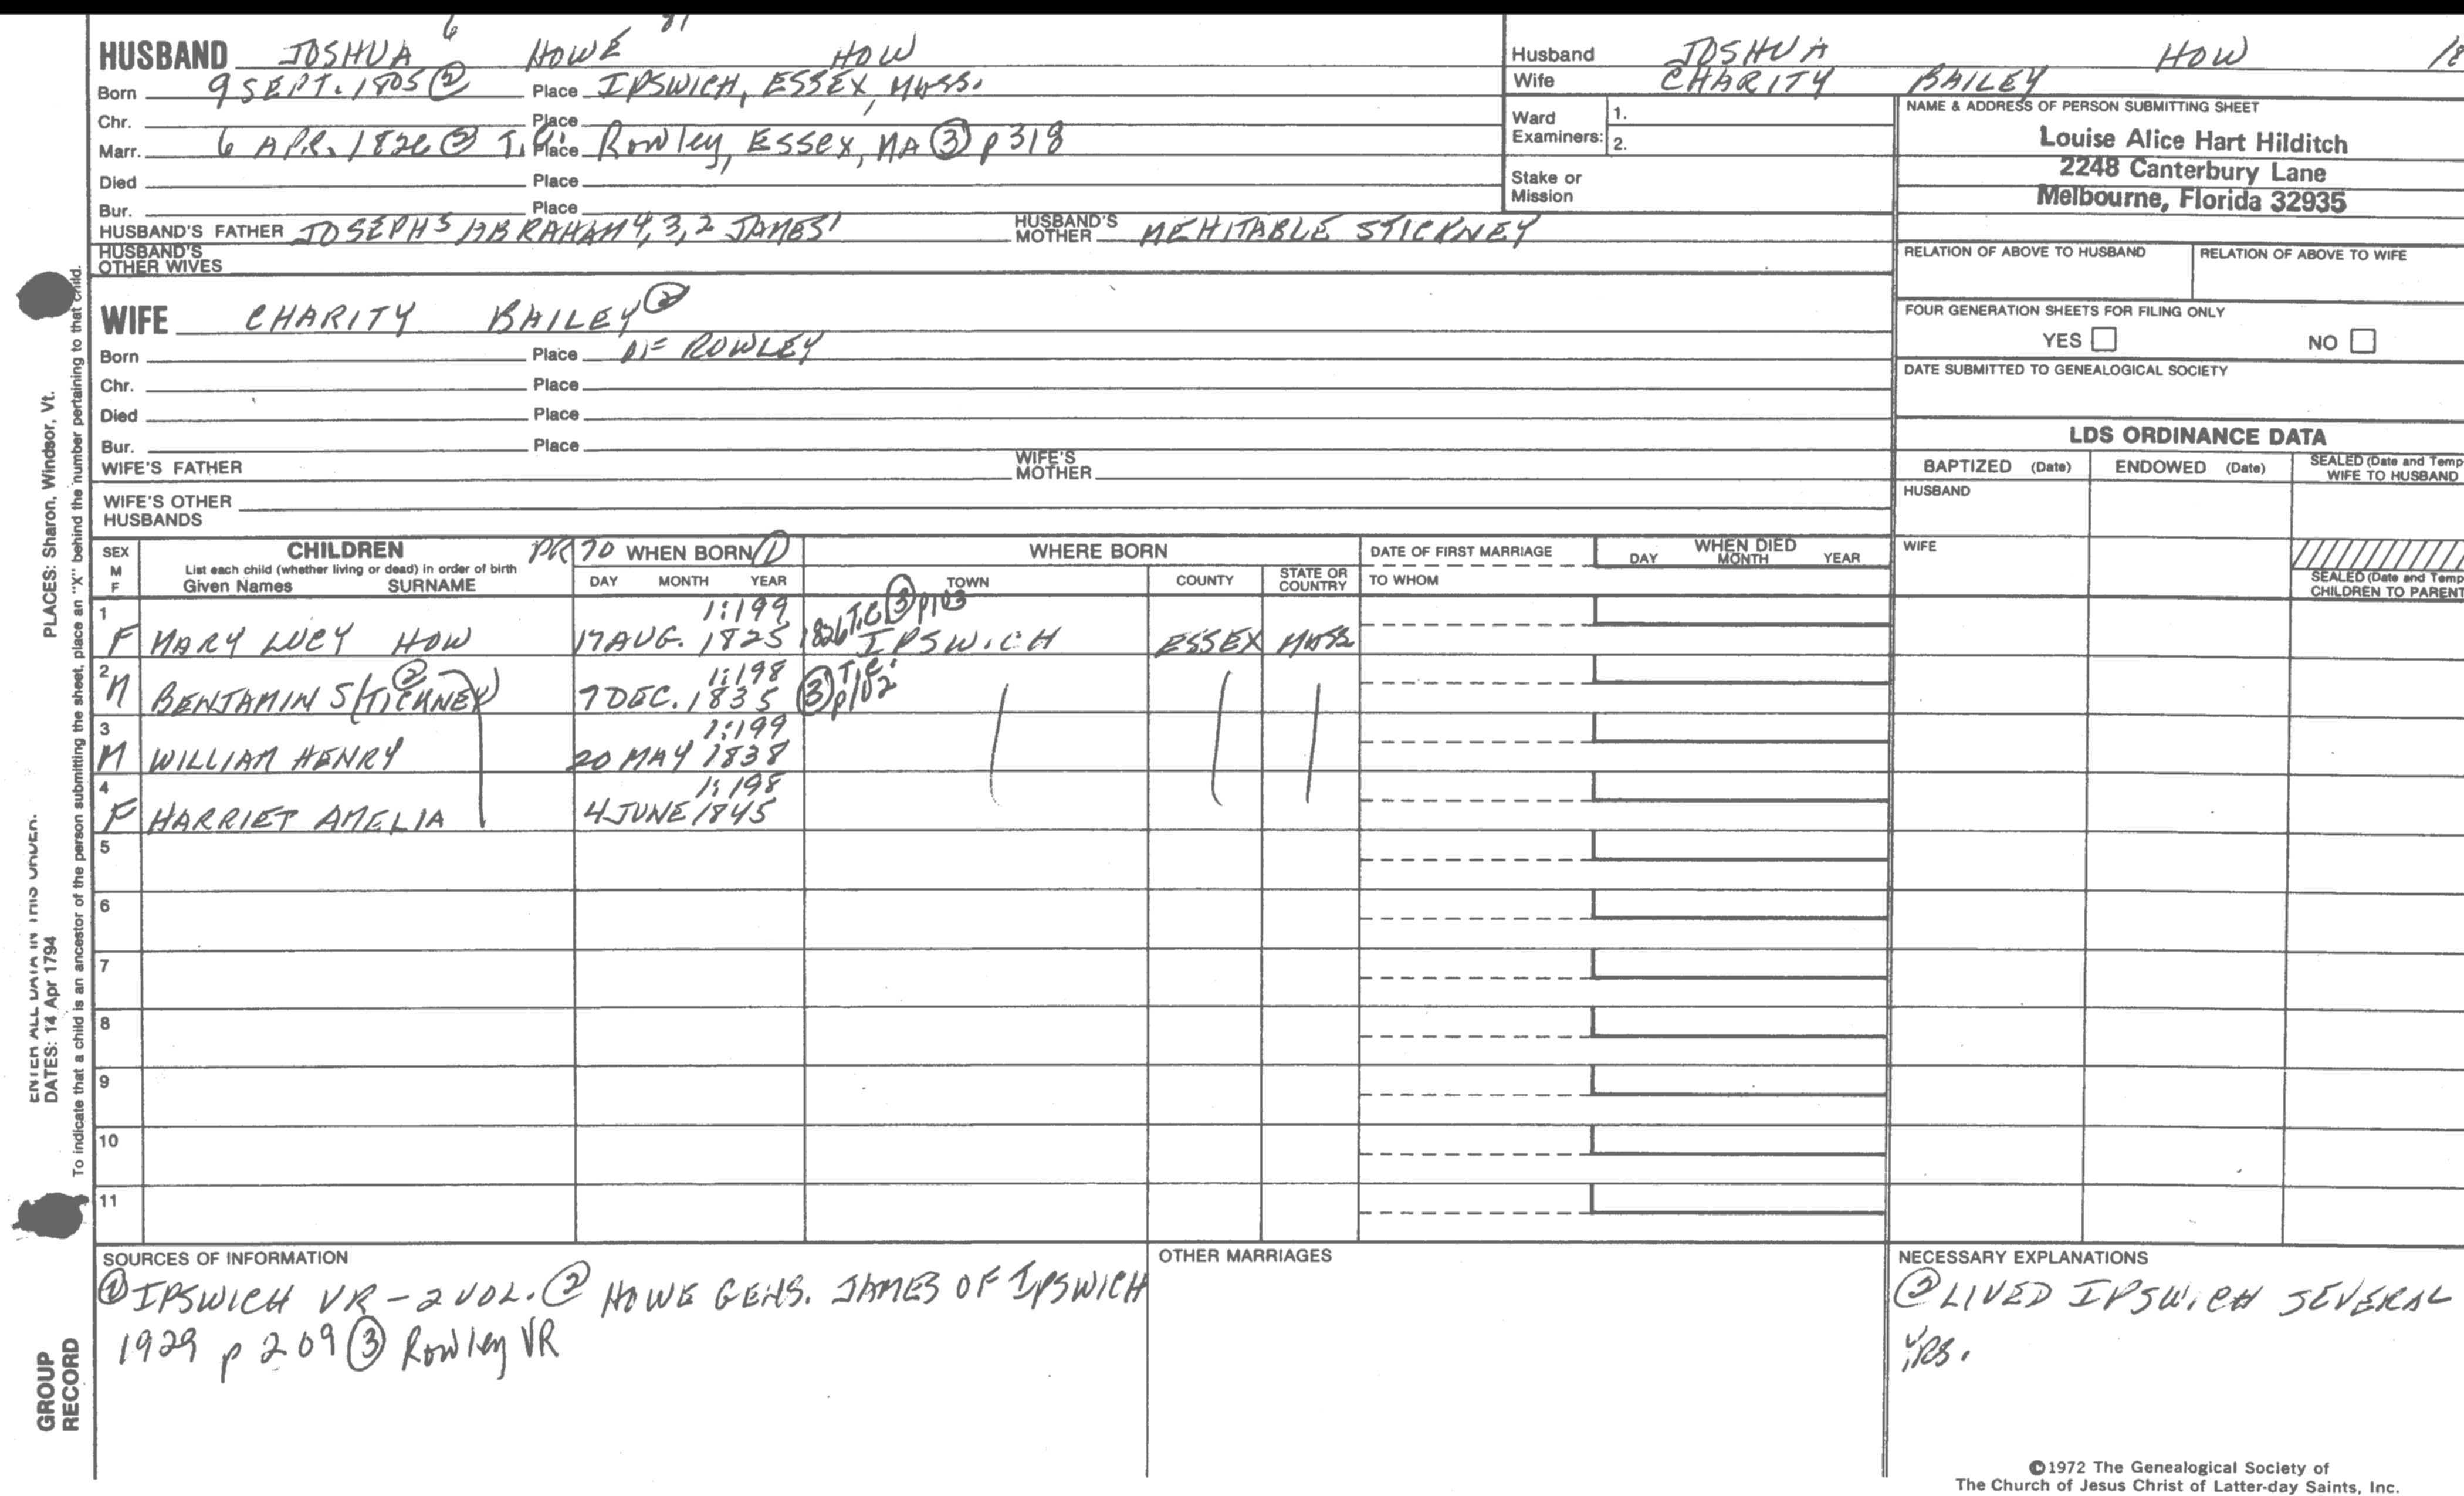 6 81
HUSBAND JOSHUA HOWE HOW
Born 9 SEPT. 1805 ② Place IPSWICH, ESSEX, MASS.
Chr. Place
Marr. 6 APR. 1826 ② Place Rowley, ESSEX, MA ③ p 318
Died Place
Bur. Place
HUSBAND'S FATHER JOSEPH5 ABRAHAM4,3,2 JAMES1 HUSBAND'S MOTHER MEHITABLE STICKNEY
HUSBAND'S OTHER WIVES
WIFE CHARITY BAILEY ②
Born Place OF ROWLEY
Chr. Place
Died Place
Bur. Place
WIFE'S FATHER WIFE'S MOTHER
WIFE'S OTHER HUSBANDS
Husband JOSHUA HOW
Wife CHARITY BAILEY
Ward Examiners: 1.
2.
Stake or Mission
NAME & ADDRESS OF PERSON SUBMITTING SHEET
Louise Alice Hart Hilditch
2248 Canterbury Lane
Melbourne, Florida 32935
RELATION OF ABOVE TO HUSBAND RELATION OF ABOVE TO WIFE
FOUR GENERATION SHEETS FOR FILING ONLY
YES NO
DATE SUBMITTED TO GENEALOGICAL SOCIETY
LDS ORDINANCE DATA
BAPTIZED (Date) ENDOWED (Date) SEALED (Date and Temp
WIFE TO HUSBAND
HUSBAND
WIFE
SEALED (Date and Temp
CHILDREN TO PARENT
SEX M F CHILDREN PR70 WHEN BORN ① WHERE BORN DATE OF FIRST MARRIAGE WHEN DIED
List each child (whether living or dead) in order of birth
Given Names SURNAME DAY MONTH YEAR TOWN COUNTY STATE OR COUNTRY TO WHOM DAY MONTH YEAR
1 1:199 1826 T.C. ③ p103
F MARY LUCY HOW 17 AUG. 1825 IPSWICH ESSEX MASS
2 ② 1:198 T.C.
M BENJAMIN S(TICKNEY) 7 DEC. 1835 ③ p102
3 1:199
M WILLIAM HENRY 20 MAY 1838
4 1:198
F HARRIET AMELIA 4 JUNE 1845
5
6
7
8
9
10
11
SOURCES OF INFORMATION
① IPSWICH VR - 2 VOL. ② HOWE GENS. JAMES OF IPSWICH
1929 p 209 ③ Rowley VR
OTHER MARRIAGES
NECESSARY EXPLANATIONS
② LIVED IPSWICH SEVERAL
YRS.
©1972 The Genealogical Society of
The Church of Jesus Christ of Latter-day Saints, Inc.
PLACES: Sharon, Windsor, Vt.
ENTER ALL DATA IN THIS ORDER:
DATES: 14 Apr 1794
To indicate that a child is an ancestor of the person submitting the sheet, place an "X" behind the number pertaining to that child.
GROUP
RECORD